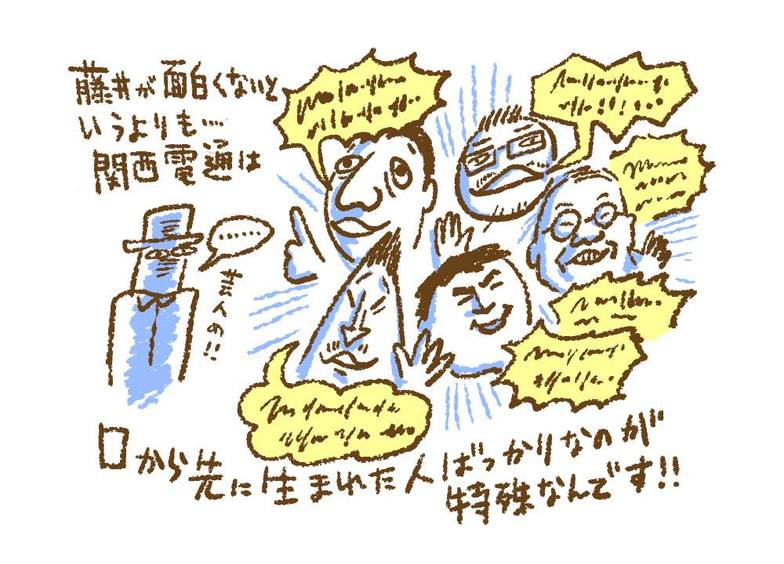 藤井が面白くないと
いうよりも…
関西電通は
………
芸人の!!
口から先に生まれた人ばっかりなのが
特殊なんです!!